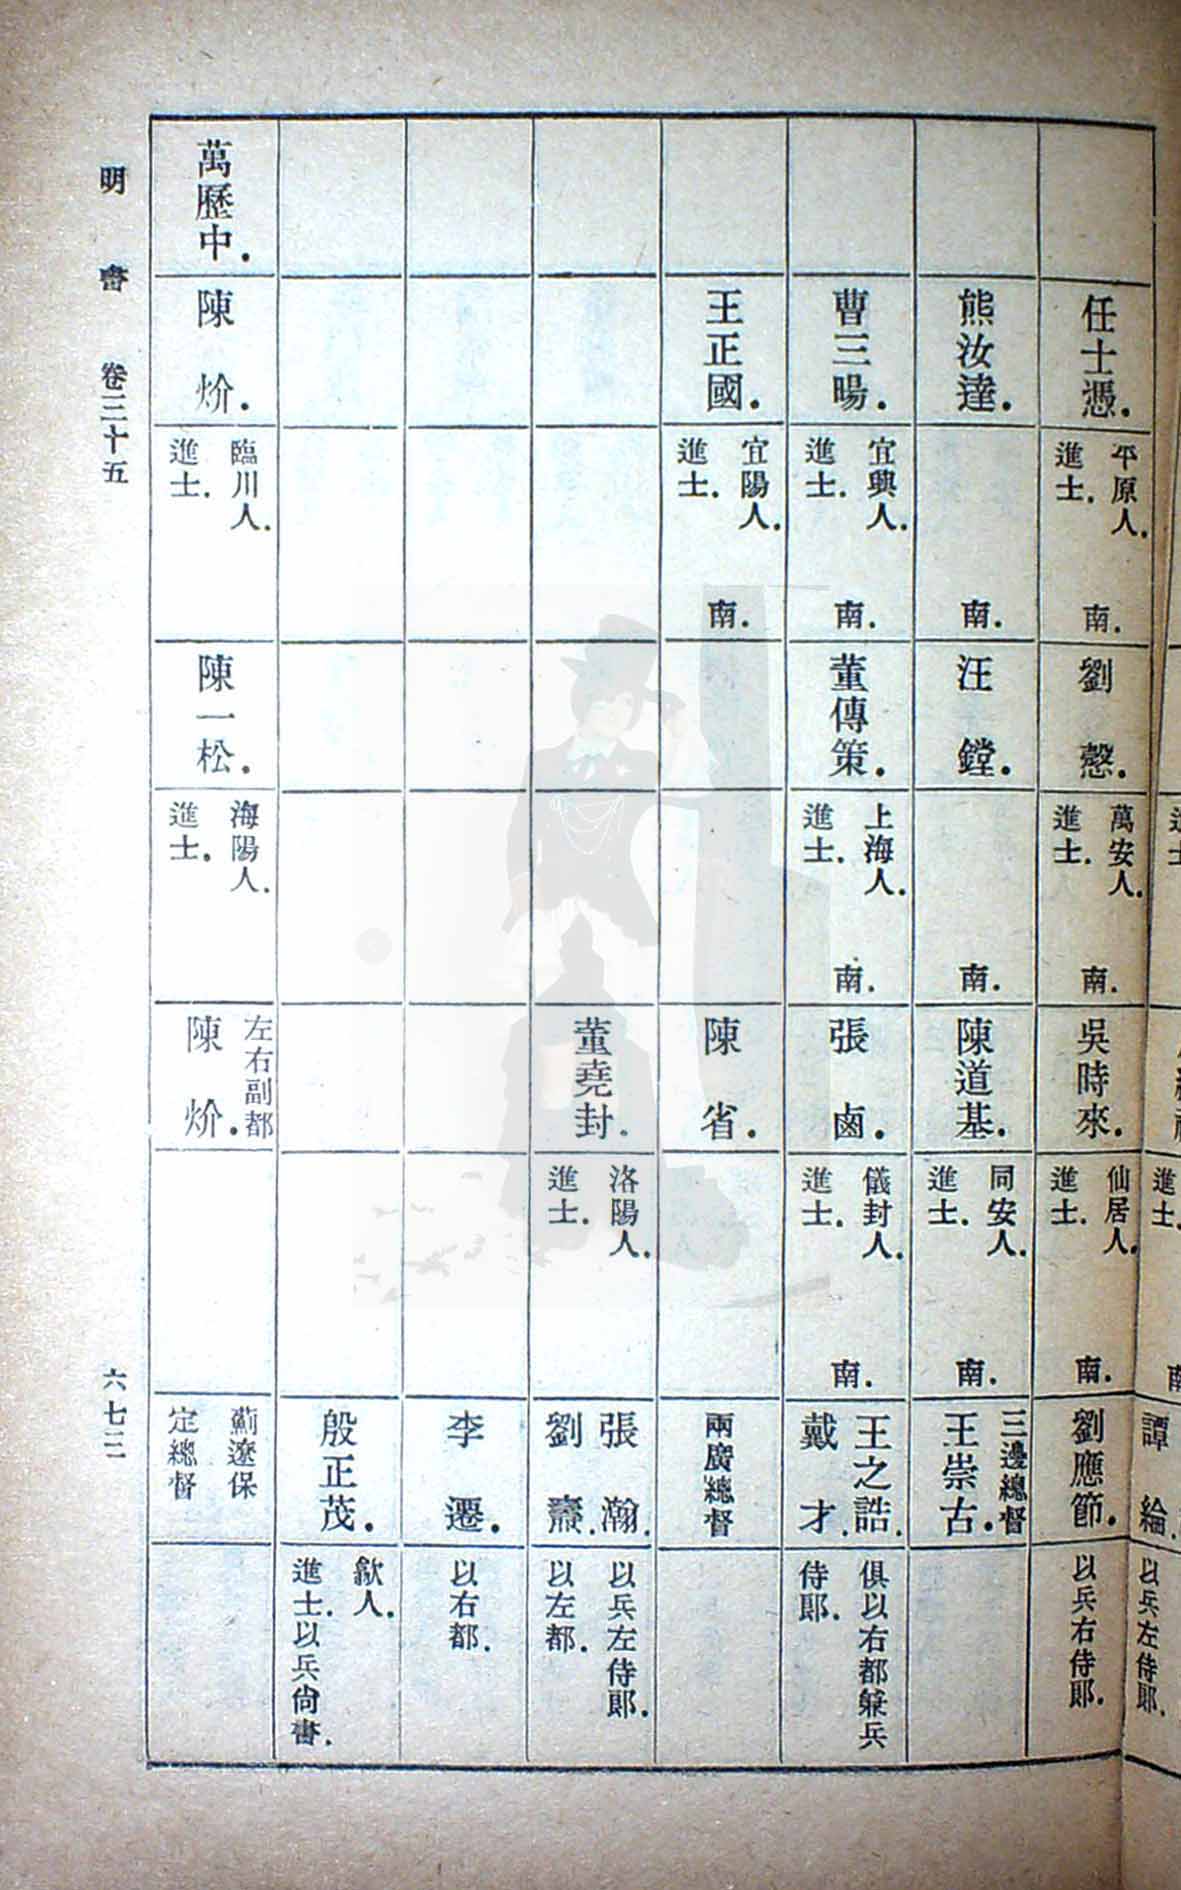 任士憑.
平原人.
進士.
南.
劉慤.
萬安人.
進士.
南.
吳時來.
仙居人.
進士.
南.
劉應節.
以兵右侍郎.
熊汝達.
南.
汪鏜.
南.
陳道基.
同安人.
進士.
南.
三邊總督
王崇古.
曹三暘.
宜興人.
進士.
南.
董傳策.
上海人.
進士.
南.
張鹵.
儀封人.
進士.
南.
王之誥.
戴才.
俱以右都兼兵
侍郎.
王正國.
宜陽人.
進士.
南.
陳省.
兩廣總督
董堯封.
洛陽人.
進士.
張瀚.
劉燾.
以兵左侍郎.
以左都.
李遷.
以右都.
殷正茂.
歙人.
進士.以兵尙書.
萬歷中.
陳炌.
臨川人.
進士.
陳一松.
海陽人.
進士.
左右副都
陳炌.
薊遼保
定總督
明書 卷三十五
六七二
譚綸.
以兵左侍郎.
進士.